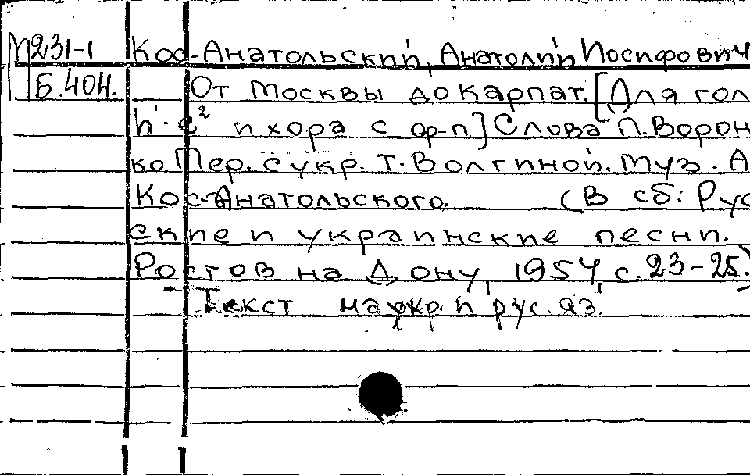 М231-1 Кос-Анатольский, Анатолий Иосифович
Б.404. От Москвы до Карпат. [Для гол
и хора с ф-п] Слова П. Ворон
ко Пер. с укр. Т. Волгиной. Муз. А
Кос-Анатольского. (В сб: Рус
ские и украинские песни.
Ростов на Дону, 1954, с. 23-25.)
Текст на укр. и рус. яз.